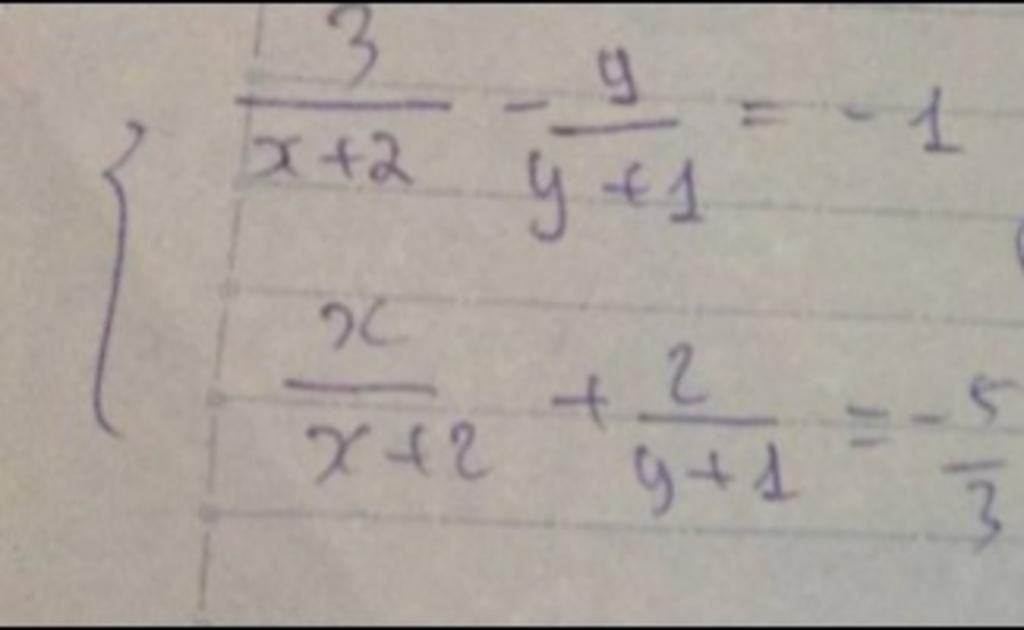 3/(x+2) - y/(y+1) = -1
x/(x+2) + 2/(y+1) = -5/3